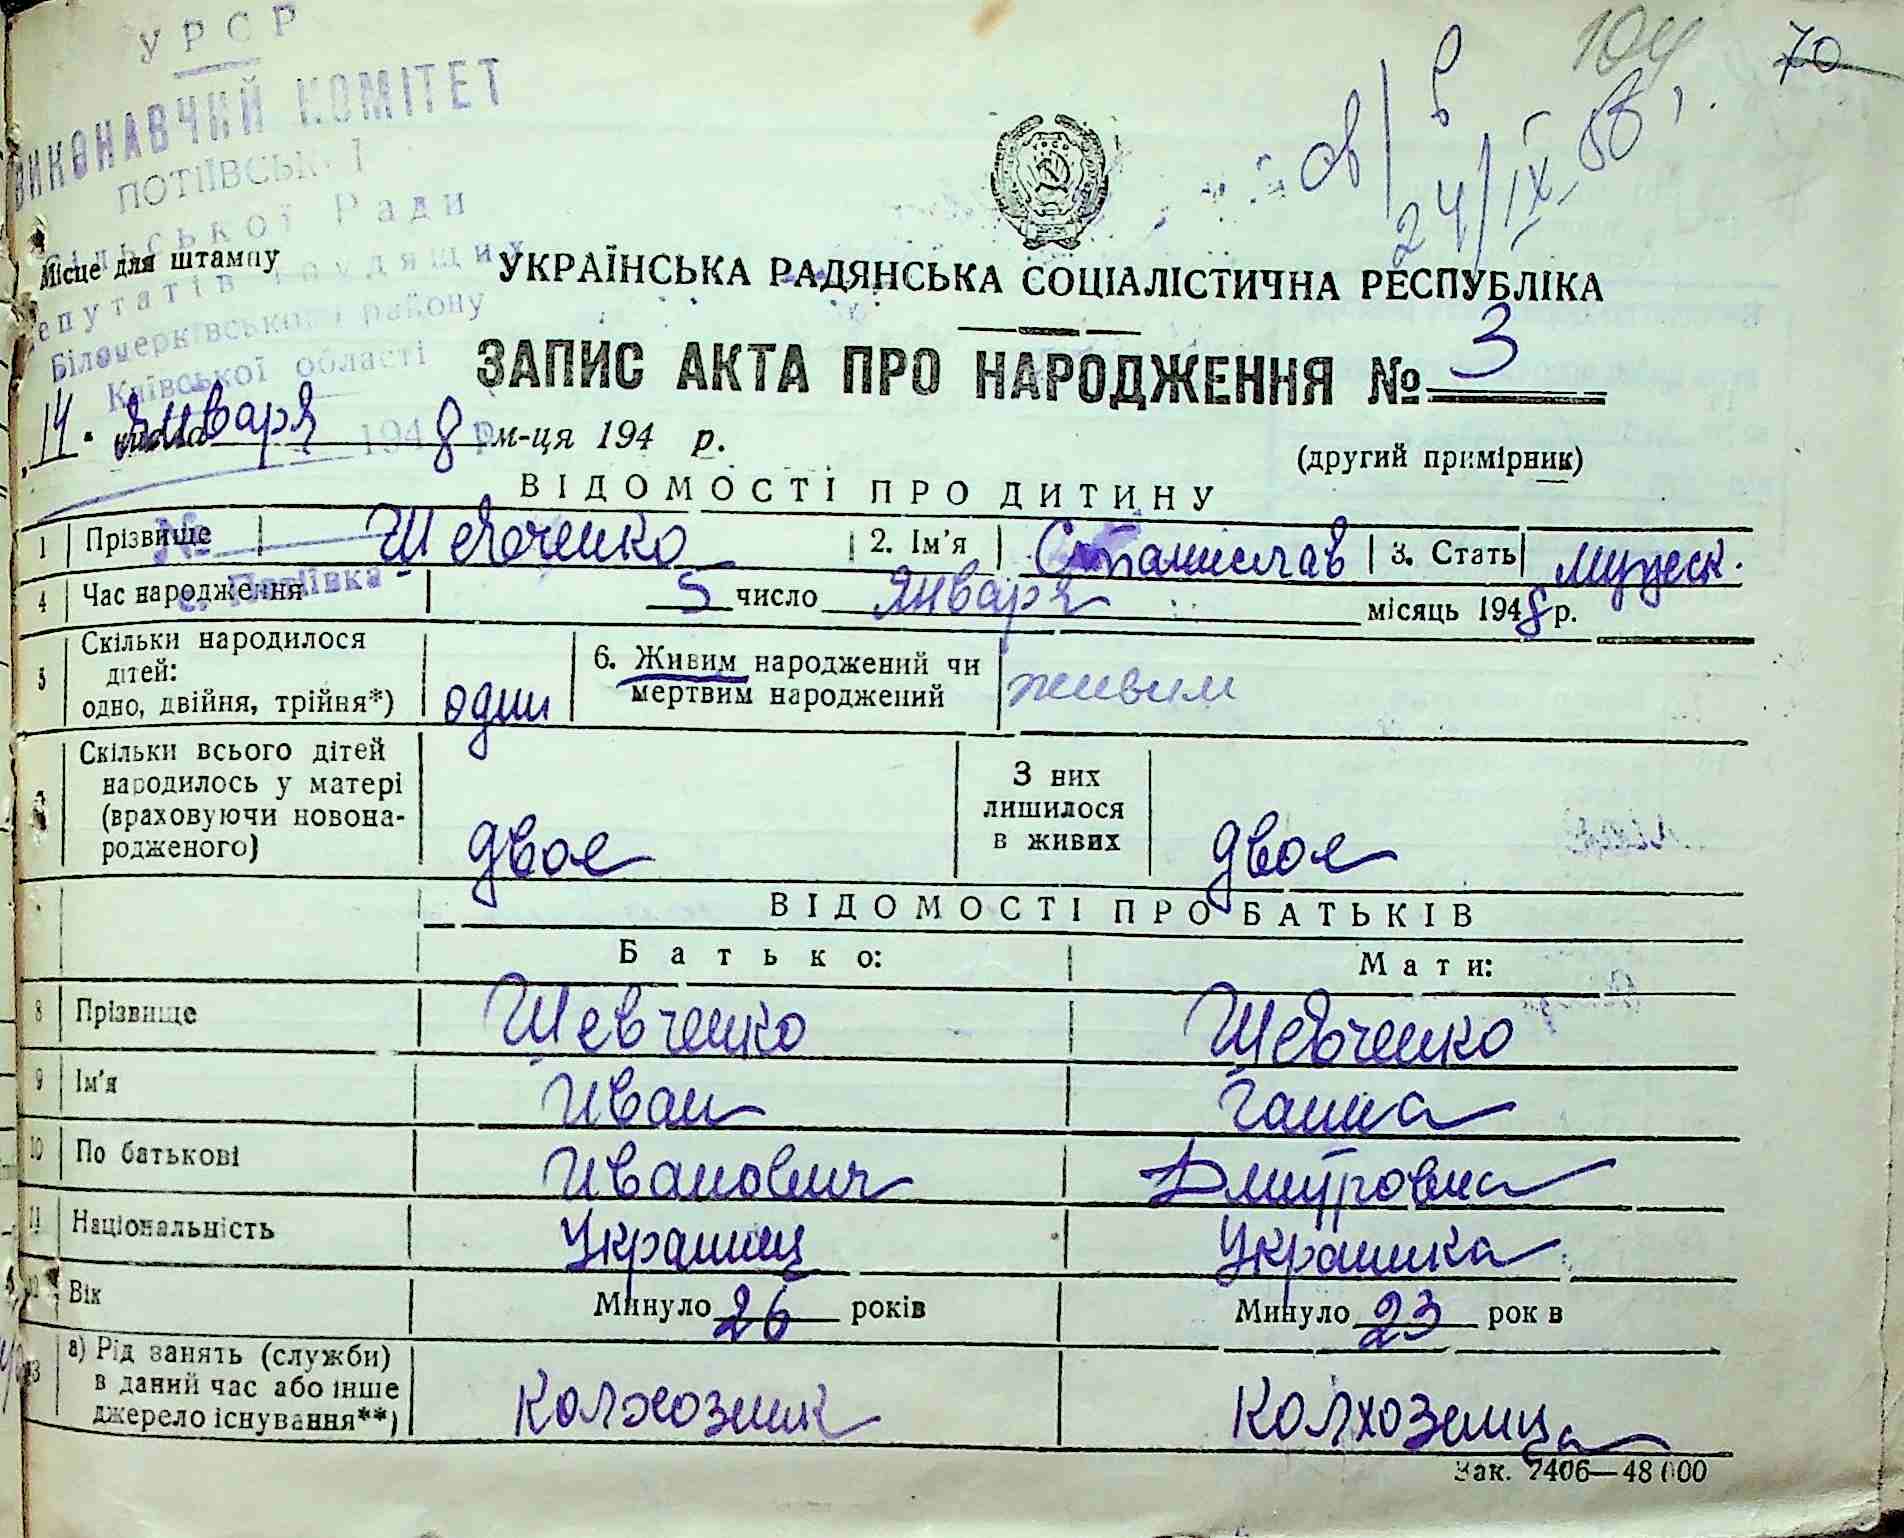 УРСР
ВИКОНАВЧИЙ КОМІТЕТ
ПОТІЇВСЬКОЇ
сільської Ради
депутатів трудящих
Білоцерківського району
Київської області
194 р.
№
с. Потіївка
104
70
24/IX-58 г.
Місце для штампу
УКРАЇНСЬКА РАДЯНСЬКА СОЦІАЛІСТИЧНА РЕСПУБЛІКА
ЗАПИС АКТА ПРО НАРОДЖЕННЯ № 3
14. числа Января 8 м-ця 194 р.
(другий примірник)
ВІДОМОСТІ ПРО ДИТИНУ
1 Прізвище Шевченко 2. Ім'я Станислав 3. Стать мужеск.
4 Час народження 5 число Января місяць 1948 р.
5 Скільки народилося дітей: одно, двійня, трійня*) один 6. Живим народжений чи мертвим народжений живим
7 Скільки всього дітей народилось у матері (враховуючи новонародженого) двое З них лишилося в живих двое
ВІДОМОСТІ ПРО БАТЬКІВ
Батько: Мати:
8 Прізвище Шевченко Шевченко
9 Ім'я Иван Ганна
10 По батькові Иванович Дмитровна
11 Національність Украинец Украинка
12 Вік Минуло 26 років Минуло 23 років
13 а) Рід занять (служби) в даний час або інше джерело існування**) Колхозник Колхозница
Зак. 2406—48000